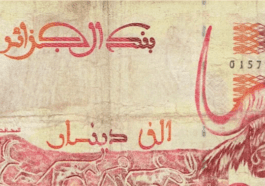 بنك الجزائر
0157
ألف دينار